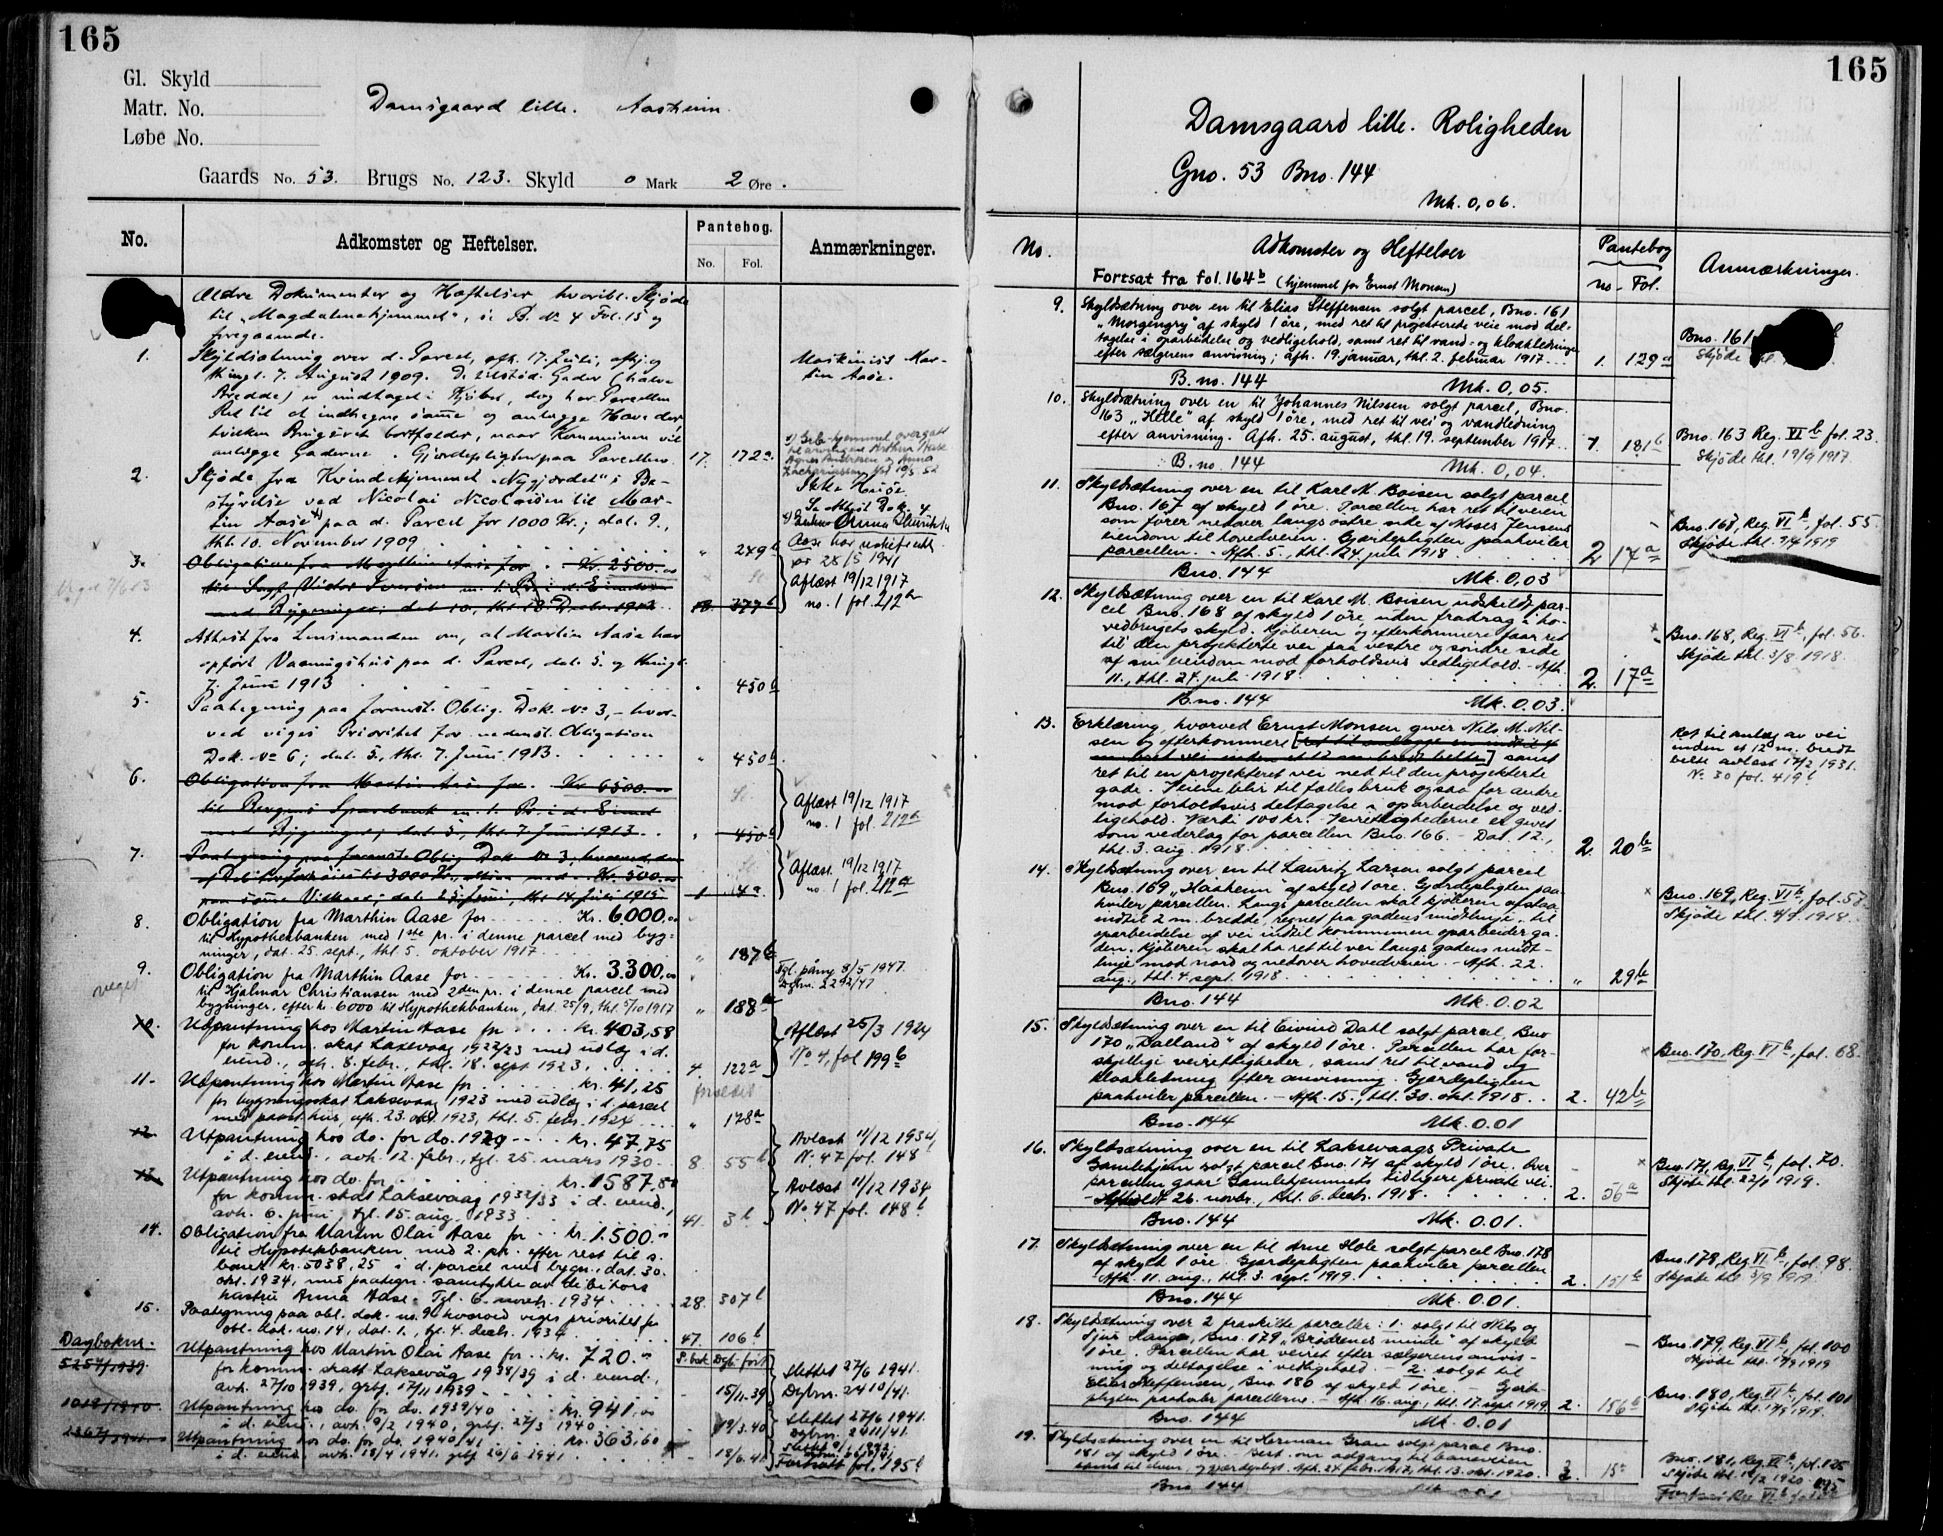 165
Gl. Skyld
Matr. No.
Løbe No.
Damsgaard lille. Aasheim.
Gaards No. 53. Brugs No. 123. Skyld 0 Mark 2 Øre.
No. Adkomster og Heftelser. Pantebog. No. Fol. Anmærkninger.
Ældre Dokumenter og Hæftelser, hvoribl. Skjøde
til "Magdalenahjemmet", se B. No 4 Fol. 15 og
foregaaende.
1. Skyldsætning over d. Parcel, afh. 17. Juli, afhj. og
thingl. 7. August 1909. De tilstød. Gader (halve
Bredde) er indtaget i Kjøbet, dog har Parcellen
Ret til at indhegne samme og anlægge Have der,
hvilken Brugsret bortfalder, naar Kommunen vil
anlægge Gaderne. Gjærdepligten paa Parcellen. 17. 172a.
Maskinist Mar-
tin Aase.
2. Skjøde fra Kvindehjemmet "Nygjærdet"s Be-
styrelse ved Nicolai Nicolaisen til Mar-
tin Aase paa d. Parcel for 1000 Kr.; dat. 9.,
thl. 10. November 1909 " 249b
Se Attest Dok. 4.
Aase har uskiftebevill.
28/5 1941
3. Obligation fra Marthin Aase for Kr. 2500.00
med Bygninger; dat. 10., thl. 18. Decbr. 1912. 18. 377b
Aflæst 19/12 1917
no. 1 fol. 212a
4. Attest fra Lensmanden om, at Martin Aase har
opført Vaaningshus paa d. Parcel, dat. 5. og thingl.
7. Juni 1913 " 450b
5. Paategning paa foranst. Oblig. Dok. No 3, - hvor-
ved viges Prioritet for nedenst. Obligation
Dok. No 6; dat. 5., thl. 7. Juni 1913. " 450b
6. Obligation fra Martin Aase for Kr. 6500.00
til Bergens Sparebank m. 1. Pr. i d. Eiend.
med Bygninger; dat. 5., thl. 7. Juni 1913. " 450b
Aflæst 19/12 1917
no. 1 fol. 212a
7. Paategning paa foranst. Oblig. Dok. No 3, hvorved den
1. 4a
Aflæst. 19/12 1917
no. 1 fol. 212a
8. Obligation fra Marthin Aase for Kr. 6000,00
til Hypothekbanken med 1ste pr. i denne parcel med byg-
ninger, dat. 25. sept., thl. 5. oktober 1917 " 187b
9. Obligation fra Marthin Aase for Kr. 3.300,00
til Hjalmar Christiansen med 2den pr. i denne parcel med
bygninger, efter kr. 6000 til Hypothekbanken, dat. 25/9, thl. 5/10 1917 " 188a
Tgl. påny 8/5 1947.
Dgbnr. 2292/47
10. Utpantning hos Martin Aase for kr. 403,58
for komm. skat Laksevaag 1922/23 med utlæg i d.
eiend., avh. 8. febr., thl. 18. sept. 1923, 4. 122a
Aflæst 25/3 1924
No 4, fol 199b
11. Utpantning hos Martin Aase for kr. 41,25
for bygningsskat Laksevaag 1923 med utlæg i d. parcel
med paast. hus, afh. 23. okt. 1923, thl. 5. febr. 1924 " 178a
forældet
12. Utpantning hos do. for do. 1929 kr. 47,75
i d. eiend., avh. 12. febr., tgl. 25. mars 1930. 8. 55b
Avlæst 11/12 1934,
No 47 fol. 148b
13. Utpantning hos do. for kr. 1587,80
for komm. skat Laksevaag 1932/33 i d. eiend.,
avh. 6. juni, tgl. 15. aug. 1933 41. 3b
Avlæst 11/12 1934
No 47 fol. 148b
14. Obligation fra Martin Olai Aase for kr. 1.500.00
til Hypotekbanken med 2. pr. efter rest til s.
banet kr. 5038,25 i d. parcel med bygn., dat. 30.
okt. 1934, med paategn. samtykke av debitors
hustru Anna Aase. Tgl. 6. novbr. 1934 28. 307b
15. Paategning paa obl. dok. no. 9 hvorved viges prioritet for
obl. dok. no. 14, dat. 1., tgl. 4. decbr. 1934 47. 106b
Dagboknr.
5257/1939 Utpantning hos Martin Olai Aase for kr. 720.00
for komm. skatt Laksevåg 1938/39 i d. eiend.,
avh. 27/10 1939, grbf. 17/11 1939 15/11-39
Slettet 27/6 1941.
Dgbnr. 2410/41.
Utpantning hos do. for do. 1939/40 kr. 941,00
i d. eiend., avh. 9/2 1940, grbf. 27/3 1940 19/3.40
Slettet 27/6 1941.
Dgbnr. 2411/41.
2367/1941 Utpantning hos do. for do. 1940/41 kr. 363,60
i d. eiend., avh. 18/4 1941, grbf. 26/6 1941 18/6.41
Fortsatt fol. 195b
165
Damsgaard lille. Roligheden
Gno. 53 Bno. 144
Mk. 0,06.
No. Adkomster og Heftelser Pantebog no - Fol. Anmærkninger.
Fortsat fra fol. 164b (hjemmel for Ernst Monsen)
9. Skyldsætning over en til Elias Steffensen solgt parcel, Bno. 161
"Morgengry" af skyld 1 øre, med ret til projekterte veie mod del-
tagelse i oparbeidelse og vedligehold, samt ret til vand- og kloakledninger
efter sælgerens anvisning; afh. 19. januar, thl. 2. februar 1917. 1. 129a
Bno. 161
Skjøde
B. no. 144 Mk. 0,05.
10. Skyldsætning over en til Johannes Nilssen solgt parcel, Bno.
163 "Helle" af skyld 1 øre, med ret til vei og vandledning
efter anvisning. Afh. 25. august, thl. 19. september 1917. 1. 181b
Bno. 163 Reg. VI b fol. 23.
Skjøde thl. 19/9 1917.
B. no. 144 Mk. 0,04.
11. Skyldsætning over en til Karl M. Boisen solgt parcel
Bno. 167 af skyld 1 øre. Parcellen har ret til veien
som fører nedover langs østre side af Moses Jensens
eiendom til hovedveien. Gjærdepligten paahviler
parcellen. - Afh. 5., thl. 24. juli 1918 2 17a
Bno. 167, Reg. VI b, fol. 55.
Skjøde thl. 9/4 1919
Bno. 144 Mk. 0,03
12. Skyldsætning over en til Karl M. Boisen utskilt par-
cel Bno. 168 af skyld 1 øre, uden fradrag i ho-
vedbrugets skyld. Kjøberen og efterkommere faar ret
til den projekterte vei paa vestre og søndre side
af sin eiendom mod forholdsvis vedligehold. - Afh.
11., thl. 24. juli 1918 2. 17a
Bno. 168, Reg. VI b, fol. 56.
Skjøde thl. 3/8 1918.
Bno. 144 Mk. 0,03.
13. Erklæring, hvorved Ernst Monsen giver Nils M. Nil-
sen og efterkommere [ret til anlægge en indtil 4
m. bred vei inden et 12 m. bredt belte] samt
ret til en projekteret vei ned til den projekterte
gade. Veiene blir til fælles bruk ogsaa for andre
mod forholdsvis deltagelse i oparbeidelse og ved-
ligehold. Værdi 100 kr. Veirettighederne er givet
som vederlag for parcellen Bno. 166. - Dat. 12.,
thl. 3. aug. 1918 2. 20b
Ret til anlæg av vei
inden et 12 m. bredt
belte avlæst 17/2 1931.
No 30 fol. 419b
14. Skyldsætning over en til Lauritz Larsen solgt parcel
Bno. 169 "Haaheim" af skyld 1 øre. Gjærdepligten paa-
hviler parcellen. Langs parcellen skal kjøberen afstaa
indtil 2 m. bredde, regnet fra gadens midtlinje, til
oparbeidelse af vei indtil kommunen oparbeider ga-
den. Kjøberen skal ha ret til vei langs gadens midt-
linje mod nord og nedover hovedveien. - Afh. 22.
aug., thl. 4. sept. 1918 " 29b
Bno. 169, Reg. VI b, fol. 57.
Skjøde thl. 4/9 1918.
Bno. 144 Mk. 0.02
15. Skyldsætning over en til Eivind Dahl solgt parcel, Bno
170 "Dalland" af skyld 1 øre. Parcellen har for-
skjellige veirettigheder, samt ret til vand og
kloakledning efter anvisning. Gjærdepligten
paahviler parcellen. - Afh. 15., thl. 30. okt. 1918. 2. 42b
Bno. 170, Reg. VI b, fol. 68.
Bno. 144 Mk. 0.01
16. Skyldsætning over en til Laksevaags Private
Gamlehjem solgt parcel Bno. 171 af skyld 1 øre. Over
parcellen gaar Gamlehjemmets tidligere private vei.
- Afholdt 26. novbr., thl. 6. decbr. 1918 2. 56a
Bno. 171, Reg. VI b, fol. 70.
Skjøde thl. 22/1 1919.
Bno. 144 Mk. 0.01.
17. Skyldsætning over en til Arne Hole solgt parcel Bno. 178
af skyld 1 øre. Gjærdepligten paahviler parcellen
Afh. 11. aug., thl. 3. sept. 1919. 2. 151b
Bno. 178, Reg. VI b, fol. 98.
Skjøde thl. 3/9 1919.
Bno. 144 Mk. 0.01.
18. Skyldsætning over 2 fraskilte parceller: 1: solgt til Nils og
Sjur Hauge, Bno. 179 "Brødrenes minde" af skyld
1 øre. Parcellen har veiret efter sælgerens anvis-
ning og deltagelse i vedligehold. - 2: solgt til
Elias Steffensen, Bno. 180 af skyld 1 øre. - Gjærde-
pligten paahviler parcellerne. Afh. 16. aug., thl. 17. sept. 1919 2. 156b
Bno. 179, Reg. VI b, fol. 100
Skjøde thl. 17/9 1919
Bno. 180, Reg. VI b, fol. 101
Skjøde thl. 17/9 1919.
Bno. 144 Mk. 0.01
19. Skyldsætning over en til Herman Gran solgt parcel Bno.
181 af skyld 1 øre. Best. om adgang til baneveien
Bno. 181, Reg. VI b, fol. 125
Bno. 144